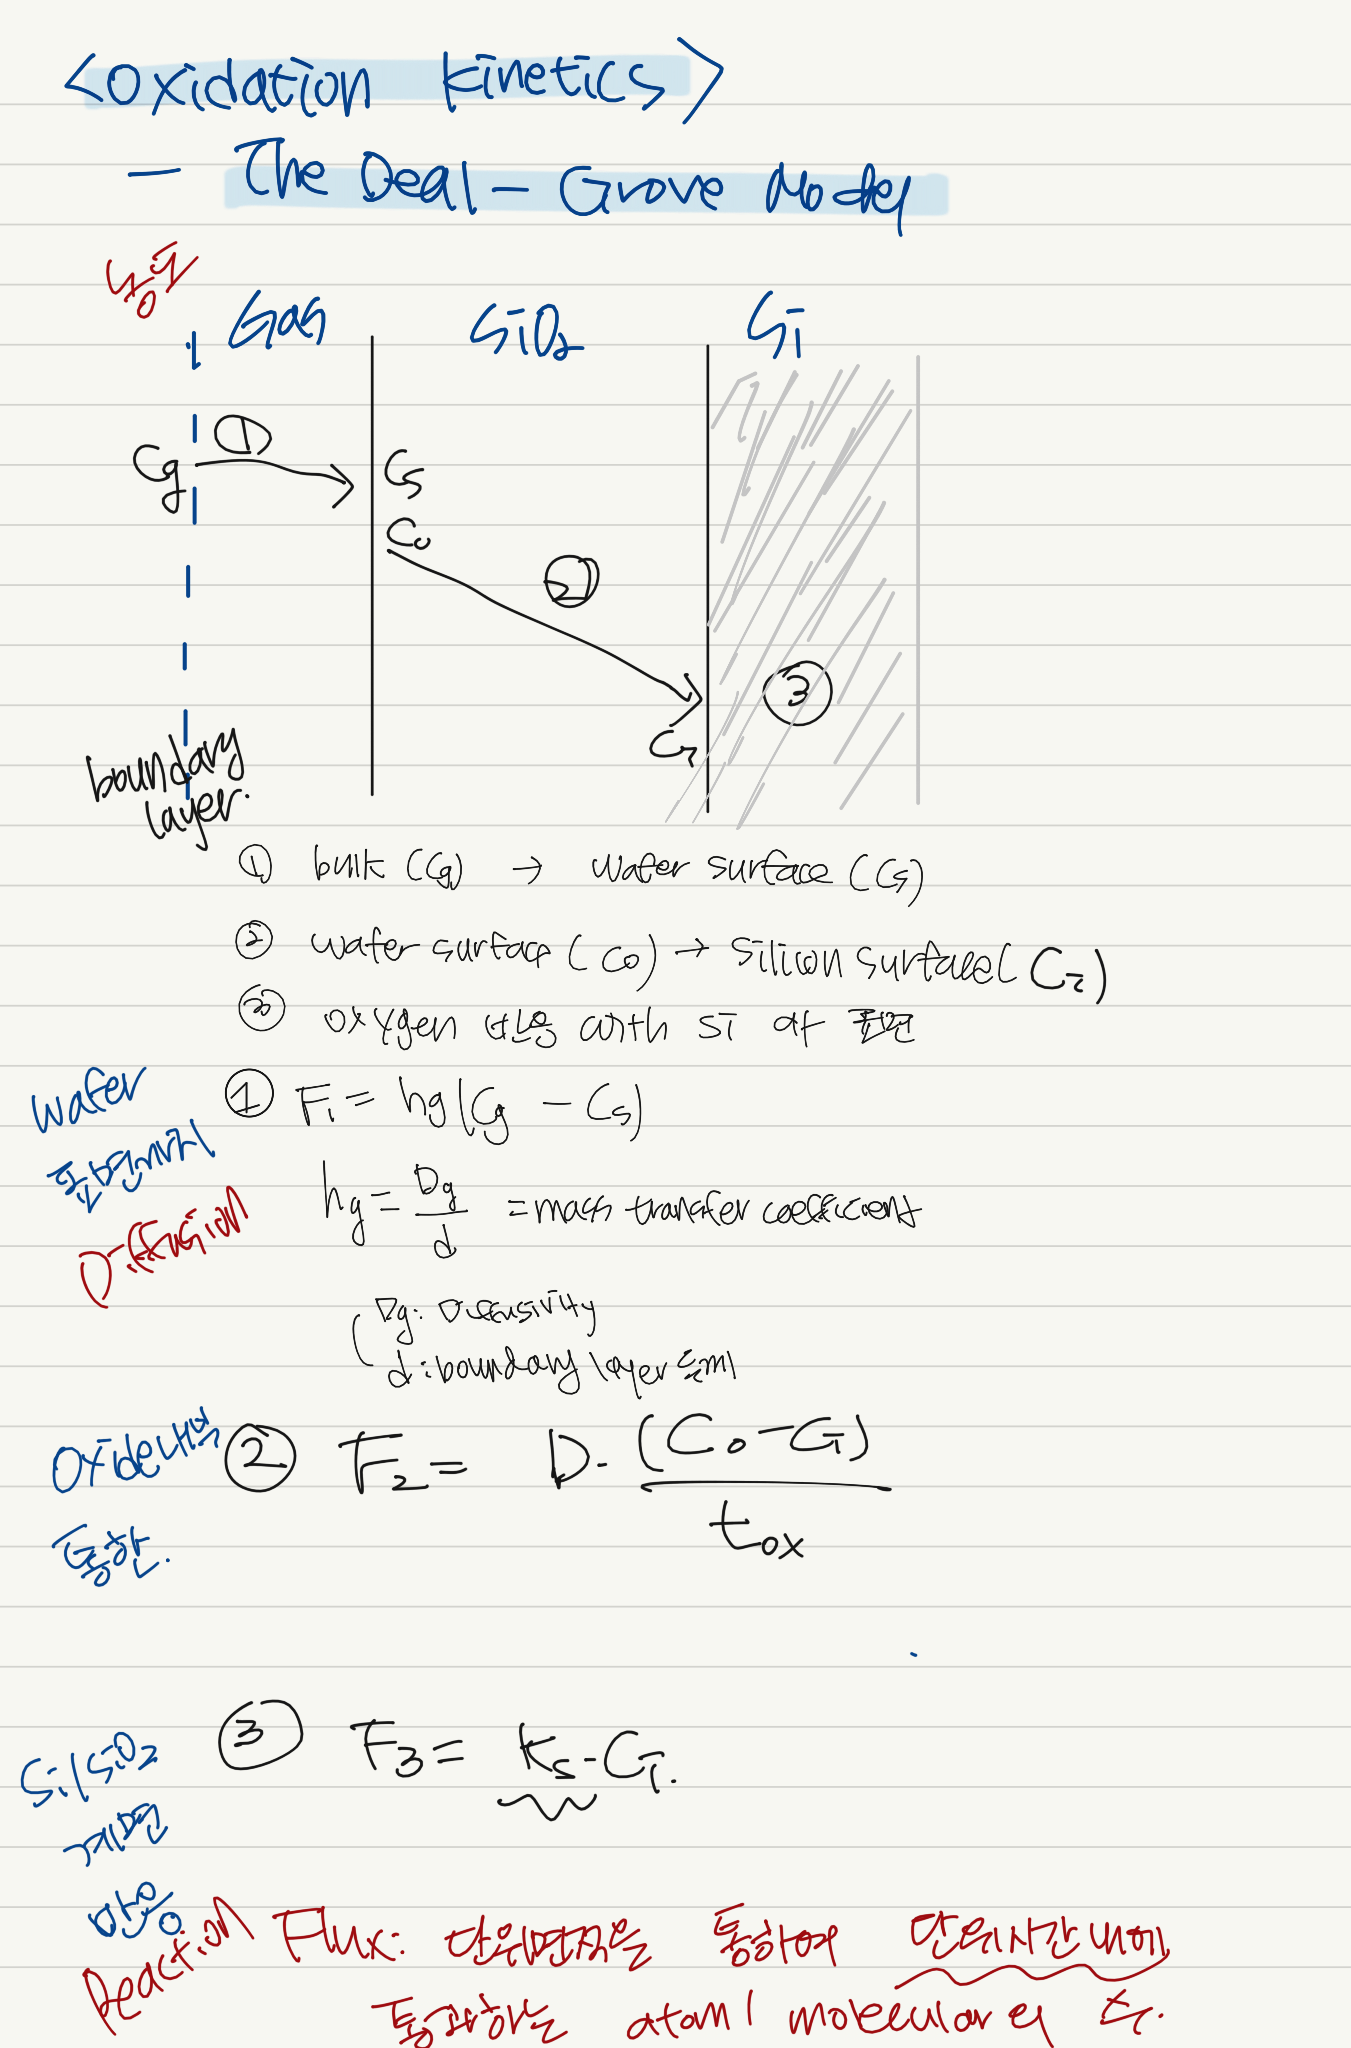 <Oxidation Kinetics>
- The Deal - Grove Model
농도
Gas SiO₂ Si
Cg ① Cs
Co
②
③
Ci
boundary
layer.
① bulk (Cg) → wafer surface (Cs)
② wafer surface (Co) → silicon surface (Ci)
③ oxygen 반응 with si at 표면
wafer
표면까지
Diffusion
① F₁ = hg (Cg - Cs)
hg = Dg/d = mass transfer coefficient
Dg: Diffusivity
d: boundary layer 두께
Oxide 내부
통한.
② F₂ = D· (Co-Ci)/tox
Si/SiO₂
계면
반응
Reaction
③ F₃ = Ks-Ci.
Flux: 단위면적을 통하여 단위시간 내에
통과하는 atom/ molecular의 수.